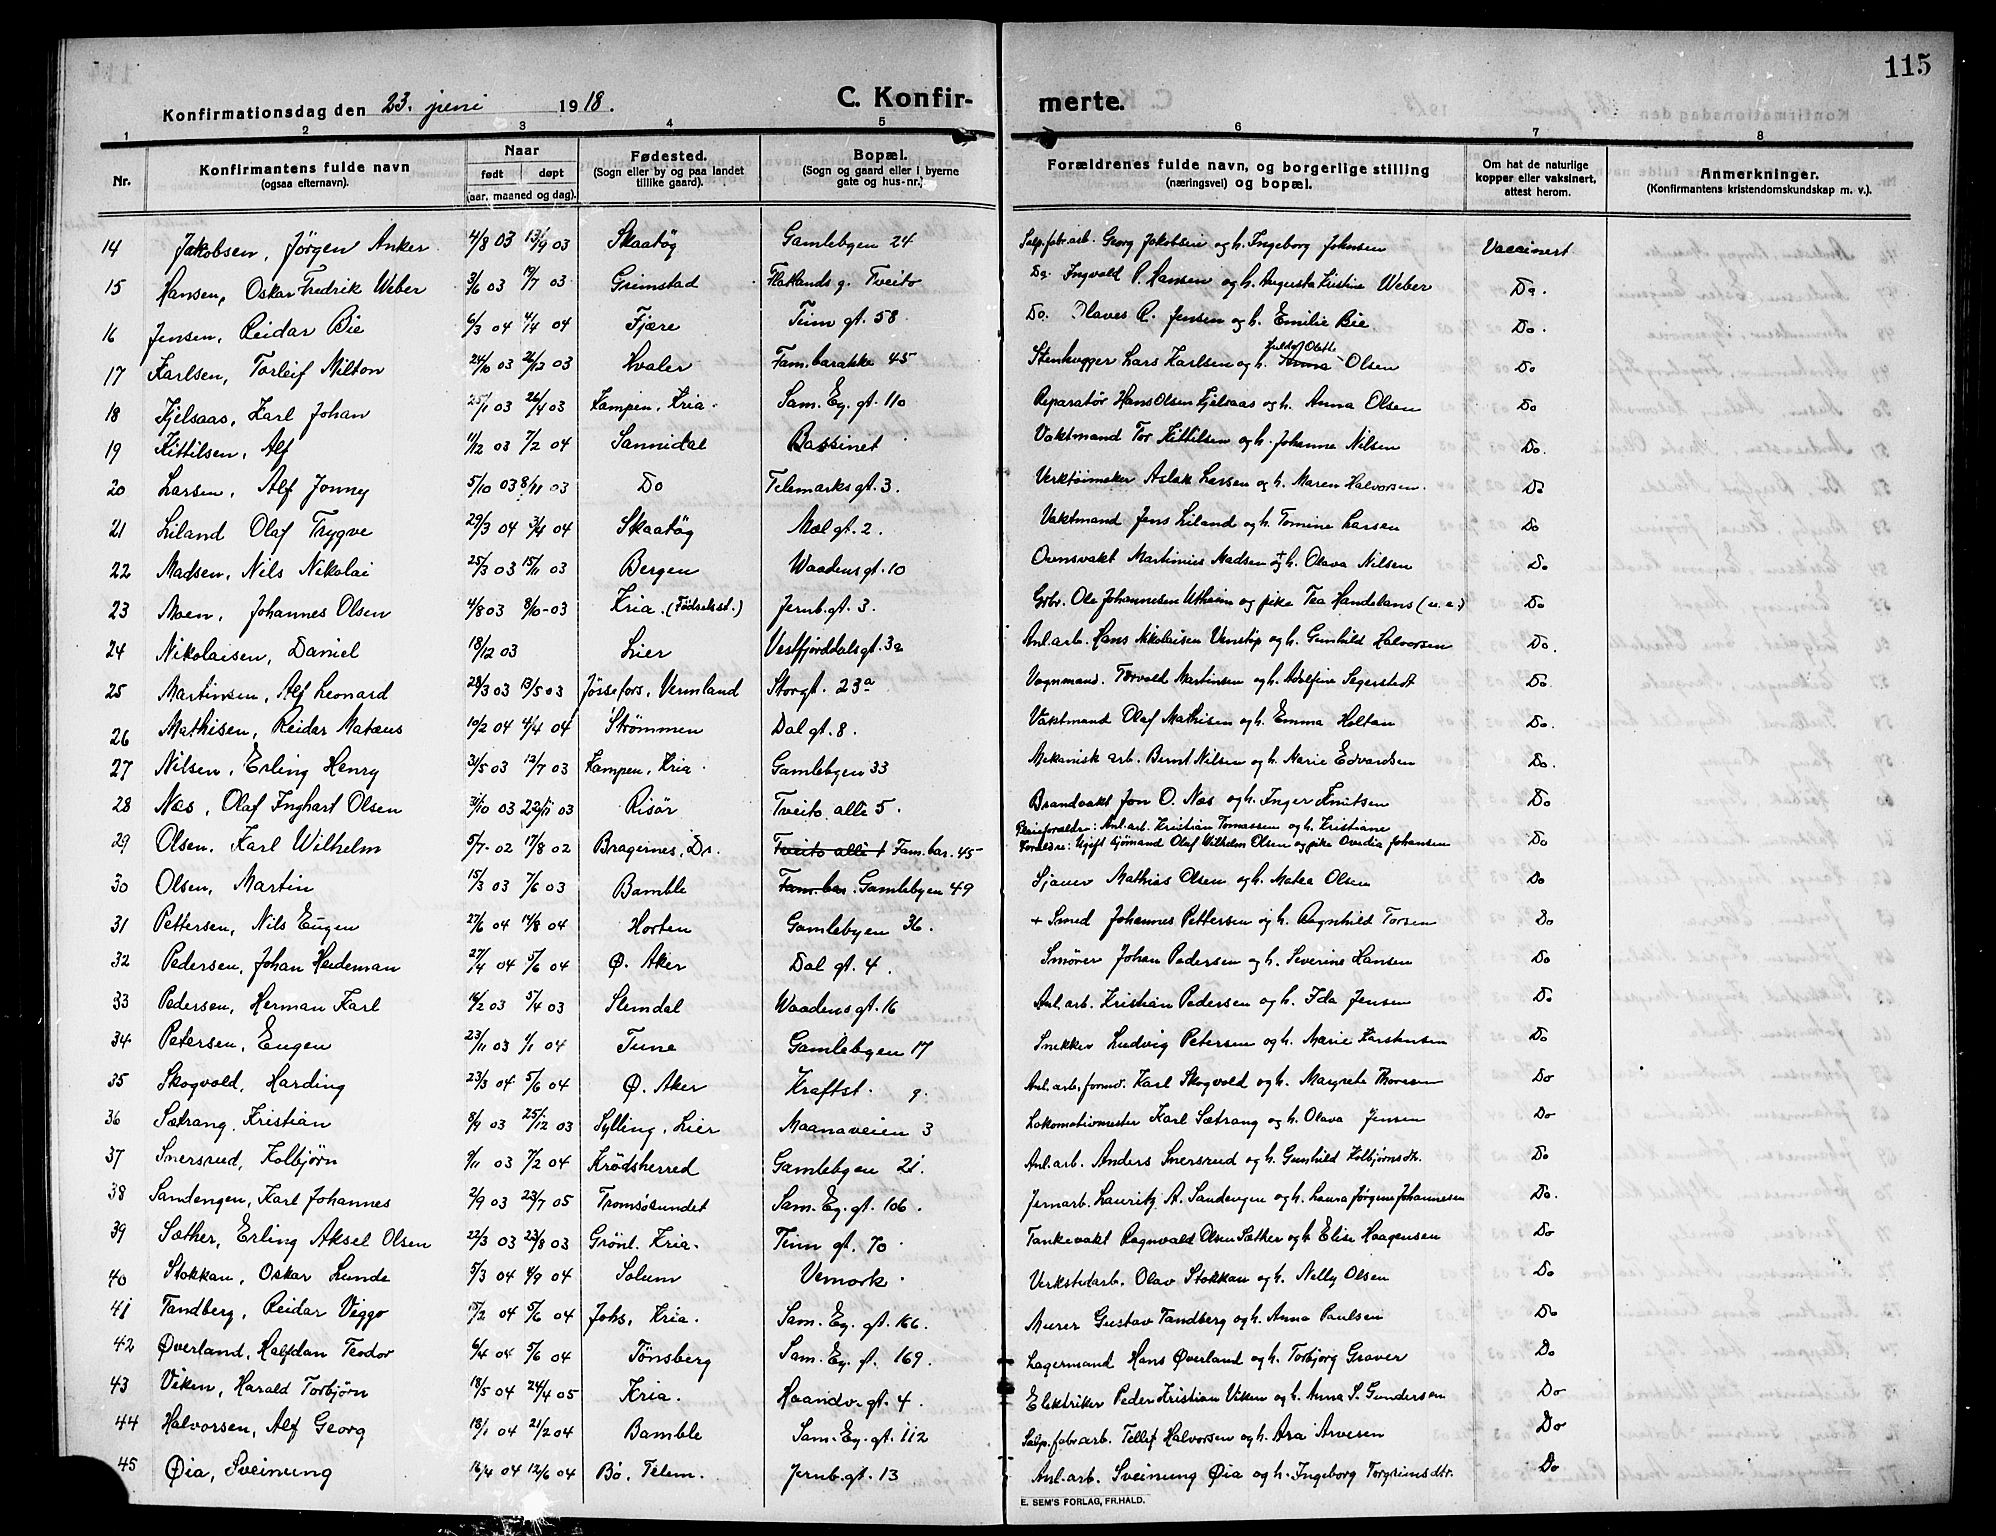 115
Konfirmationsdag den 23. juni 1918. C. Konfir- merte.
1 2 3 4 5 6 7 8
Nr. Konfirmantens fulde navn (ogsaa efternavn). Naar født døpt (aar, maaned og dag). Fødested. (Sogn eller by og paa landet tillike gaard). Bopæl. (Sogn og gaard eller i byerne gate og hus-nr.) Forældrenes fulde navn, og borgerlige stilling (næringsvei) og bopæl. Om hat de naturlige kopper eller vaksinert, attest herom. Anmerkninger. (Konfirmantens kristendomskundskap m. v.).
14 Jakobsen, Jørgen Anker 4/8 03 13/9 03 Skaatøy Gamlebyen 24 Salp.fabr.arb. Georg Jakobsen og h. Ingeborg Johnsen Vaccinert
15 Hansen, Oskar Fredrik Weber 3/6 03 19/7 03 Grimstad Flatlands g. Tveito Do Ingvald P. Hansen og h. Augusta Kristine Weber Do.
16 Jensen, Reidar Bie 6/3 04 4/4 04 Fjære Tinn gt. 58 Do. Olaves R. Jensen og h. Emilie Bie Do.
17 Karlsen, Torleif Milton 24/10 03 26/12 03 Hvaler Fam.barakke 45 Stenhugger Lars Karlsen og h. Anna Olsen Do
18 Kjelsaas, Karl Johan 25/1 03 26/4 03 Kampen, Kria. Sam. Ey. gt. 110 Reparatør Hans Olsen Kjelsaas og h. Anna Olsen Do
19 Kittilsen, Alf 11/12 03 7/2 04 Sannidal Bassinet Vaktmand Tor Kittilsen og h. Johanne Nilsen Do.
20 Larsen, Alf Jonny 5/10 03 8/11 03 Do Telemarksgt. 3. Verktøimaker Aslak Larsen og h. Maren Halvorsen. Do
21 Liland Olaf Trygve 29/3 04 3/4 04 Skaatøy Mæl gt. 2. Vaktmand Jens Liland og h. Tomine Larsen Do
22 Madsen, Nils Nikolai 25/3 03 15/11 03 Bergen Waadensgt. 10 Ovnsvakt Martinius Madsen og + h. Olava Nilsen Do
23 Moen, Johannes Olsen 4/8 03 8/10-03 Kria. (Fødselsst.) Jernb.gt. 3. Grbr. Ole Johannesen Utheim og pike Tea Handelans (u.e.) Do
24 Nikolaisen, Daniel 18/12 03 Lier Vestfjorddalsgt. 32 Anl.arb. Hans Nikolaisen Venstøp og h. Gunhild Halvorsen Do.
25 Martinsen, Alf Leonard 28/3 03 13/5 03 Jössefors, Vermland Storgt. 23a Vognmand. Torvald Martinsen og h. Adolfine Segerstedt Do.
26 Mathisen, Reidar Matæus 10/2 04 4/4 04 Strømmen Dal gt. 8. Vaktmand Olaf Mathisen og h. Emma Holtan Do.
27 Nilsen, Erling Henry 31/5 03 12/7 03 Kampen, Kria. Gamlebyen 33 Mekanisk arb. Bernt Nilsen og h. Marie Edvardsen Do.
28 Næs, Olaf Inghart Olsen 31/10 03 22/11 03 Risør Tveito alle 5. Brandvakt Jon O. Næs og h. Inger Knutsen Do
29 Olsen, Karl Wilhelm 5/7-02 17/8 02 Bragernes, Dr. Tveito alle 1 Fam.bar. 45 Pleieforældre: Anl.arb. Kristian Tomassen og h. Kristiane
Forældre: Ugift sjømand Olaf Wilhelm Olsen og pike Ovedia Johansen Do
30 Olsen, Martin 15/3 03 7/6 03 Bamble Fam.bar. Gamlebyen 49 Sjauer Mathias Olsen og h. Matea Olsen Do
31 Pettersen, Nils Eugen 27/6 04 14/8 04 Horten Gamlebyen 36. + Smed Johannes Pettersen og h. Ragnhild Torsen Do
32 Pedersen, Johan Heideman 27/4 04 5/6 04 Ø. Aker Dal gt. 4. Smører Johan Pedersen og h. Severine Hansen Do
33 Pedersen, Herman Karl 16/2 03 5/4 03 Slemdal Waadensgt. 16 Anl.arb. Kristian Pedersen og h. Ida Jensen Do
34 Petersen, Eugen 23/11 03 1/1 04 Tune Gamlebyen 17 Snekker Ludvig Petersen og h. Marie Karstensen Do
35 Skogvold, Harding 23/3 04 5/6 04 Ø. Aker Kraftst. 9. Anl.arb.formd. Karl Skogvold og h. Margrete Thoresen Do
36 Sætrang, Kristian 8/9 03 25/12 03 Sylling, Lier Maanaveien 3 Lokomotivmester Karl Sætrang og h. Olava Jensen Do
37 Snersrud, Kolbjørn 9/11 03 7/2 04 Krødsherred Gamlebyen 21. Anl.arb. Anders Snersrud og h. Gunhild Kolbjørnsdt. Do
38 Sandengen, Karl Johannes 2/9 03 23/7 05 Tromsøsundet Sam. Ey. gt. 106. Jernarb. Lauritz A. Sandengen og h. Laura Jørgine Johannesen Do.
39 Sæther, Erling Aksel Olsen 22/3 03 23/8 03 Grønl. Kria. Tinn gt. 70 Tankevakt Ragnvald Olsen Sæther og h. Elise Haagensen Do
40 Stokkan, Oskar Lunde 5/3 04 4/9 04 Solum Vemork. Verkstedarb. Olav Stokkan og h. Nelly Olsen Do
41 Tandberg, Reidar Viggo 15/2 04 5/6 04 Johs, Kria. Sam. Ey. gt. 166. Murer Gustav Tandberg og h. Anna Paulsen Do
42 Øverland, Halfdan Teodor 6/4 04 5/6 04 Tønsberg Sam. Ey. gt. 169. Lagermand Hans Øverland og h. Torbjørg Graver Do
43 Viken, Harald Torbjørn 18/5 04 24/4 05 Kria. Haandv.gt. 4. Elektriker Peder Kristian Viken og h. Anna S. Gundersen Do
44 Halvorsen, Alf Georg 18/1 04 21/2 04 Bamble Sam. Ey. gt. 112 Salp.fabr.arb. Tellef Halvorsen og h. Asa Arvesen Do
45 Øia, Sveinung 16/4 04 12/6 04 Bø, Telem. Jernb.gt. 13 Anl.arb. Sveinung Øia og h. Ingeborg Torgrimsdtr. Do
E. SEM'S FORLAG, FR.HALD.